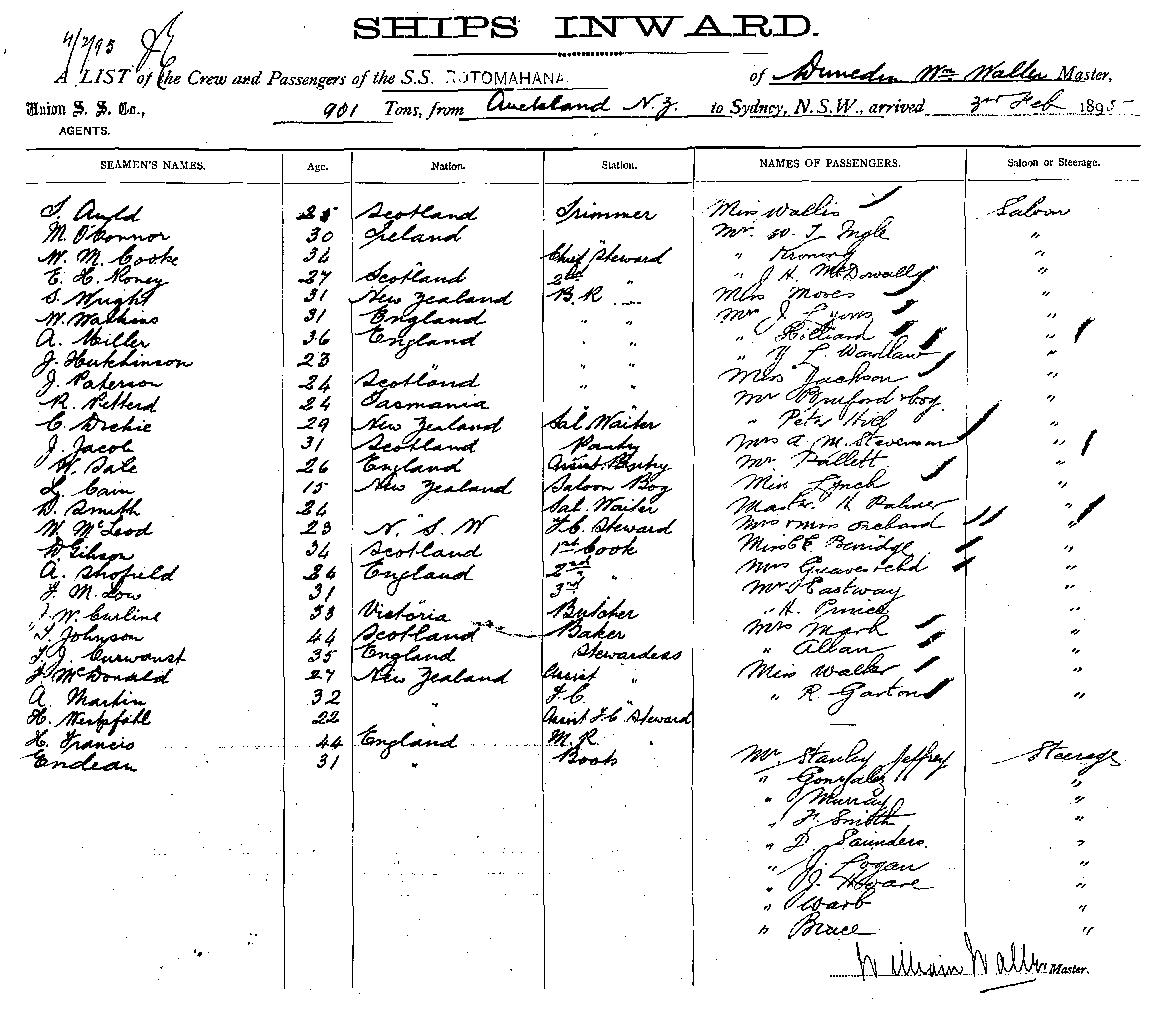 SHIPS INWARD.
4/2/95
A LIST of the Crew and Passengers of the S.S. ROTOMAHANA. of Dunedin Wm Waller Master,
Union S. S. Co., 901 Tons, from Auckland N.Z. to Sydney, N.S.W., arrived 3rd Feb 1895
AGENTS.
SEAMEN'S NAMES. Age. Nation. Station. NAMES OF PASSENGERS. Saloon or Steerage.
Auld 25 Scotland Trimmer Miss Wallis Saloon
M. O'Connor 30 Ireland " Mr. W. T. Ingle "
W. M. Cooke 34 Chief Steward " Kroning "
E. H. Roney 27 Scotland 2nd " " J H McDowall "
S. Wright 31 New Zealand B.R. Miss Moves "
W. Watkins 31 England " " Mrs J. Lyons "
A. Miller 36 England " " " Hilliard "
J. Hutchinson 23 " " " L Wardlaw "
J. Paterson 24 Scotland " " Miss Jackson "
R. Petterd 24 Tasmania " " Mr Bruford & boy "
C. Dickie 29 New Zealand Sal Waiter " Peter "
J. Jacob 31 Scotland Pantry Mrs A. M. Stevenson "
W. Dale 26 England Assist. Pantry Mr Pallett "
L. Cain 15 New Zealand Saloon Boy Miss Lynch "
D. Smith 24 " Sal. Waiter Master H Palmer "
W. McLeod 23 N. S. W F.C. Steward Mrs & Miss Orchard "
W Gibson 34 Scotland 1st Cook Miss "
A. Shofield 24 England 2nd " Mrs "
F. M. Low 31 " 3rd " Mr Eastway "
W. Curline 33 Victoria Butcher " H. Prince "
T. Johnson 44 Scotland Baker Mrs Mark "
T. J. 35 England Stewardess " Allan "
J. McDonald 27 New Zealand Assist " Miss Walker "
A. Martin 32 " F.C. " R. Garton "
H. Westpfahl 22 Assist F.C. Steward
H. Francis 44 England M.R. "
Endean 31 " Books Mr. Stanley Jeffrey Steerage
" Gonzales "
" Murray "
" F. Smith "
" D. Saunders. "
" J. Logan "
" J. "
" Warb "
" Bruce "
William Waller Master.